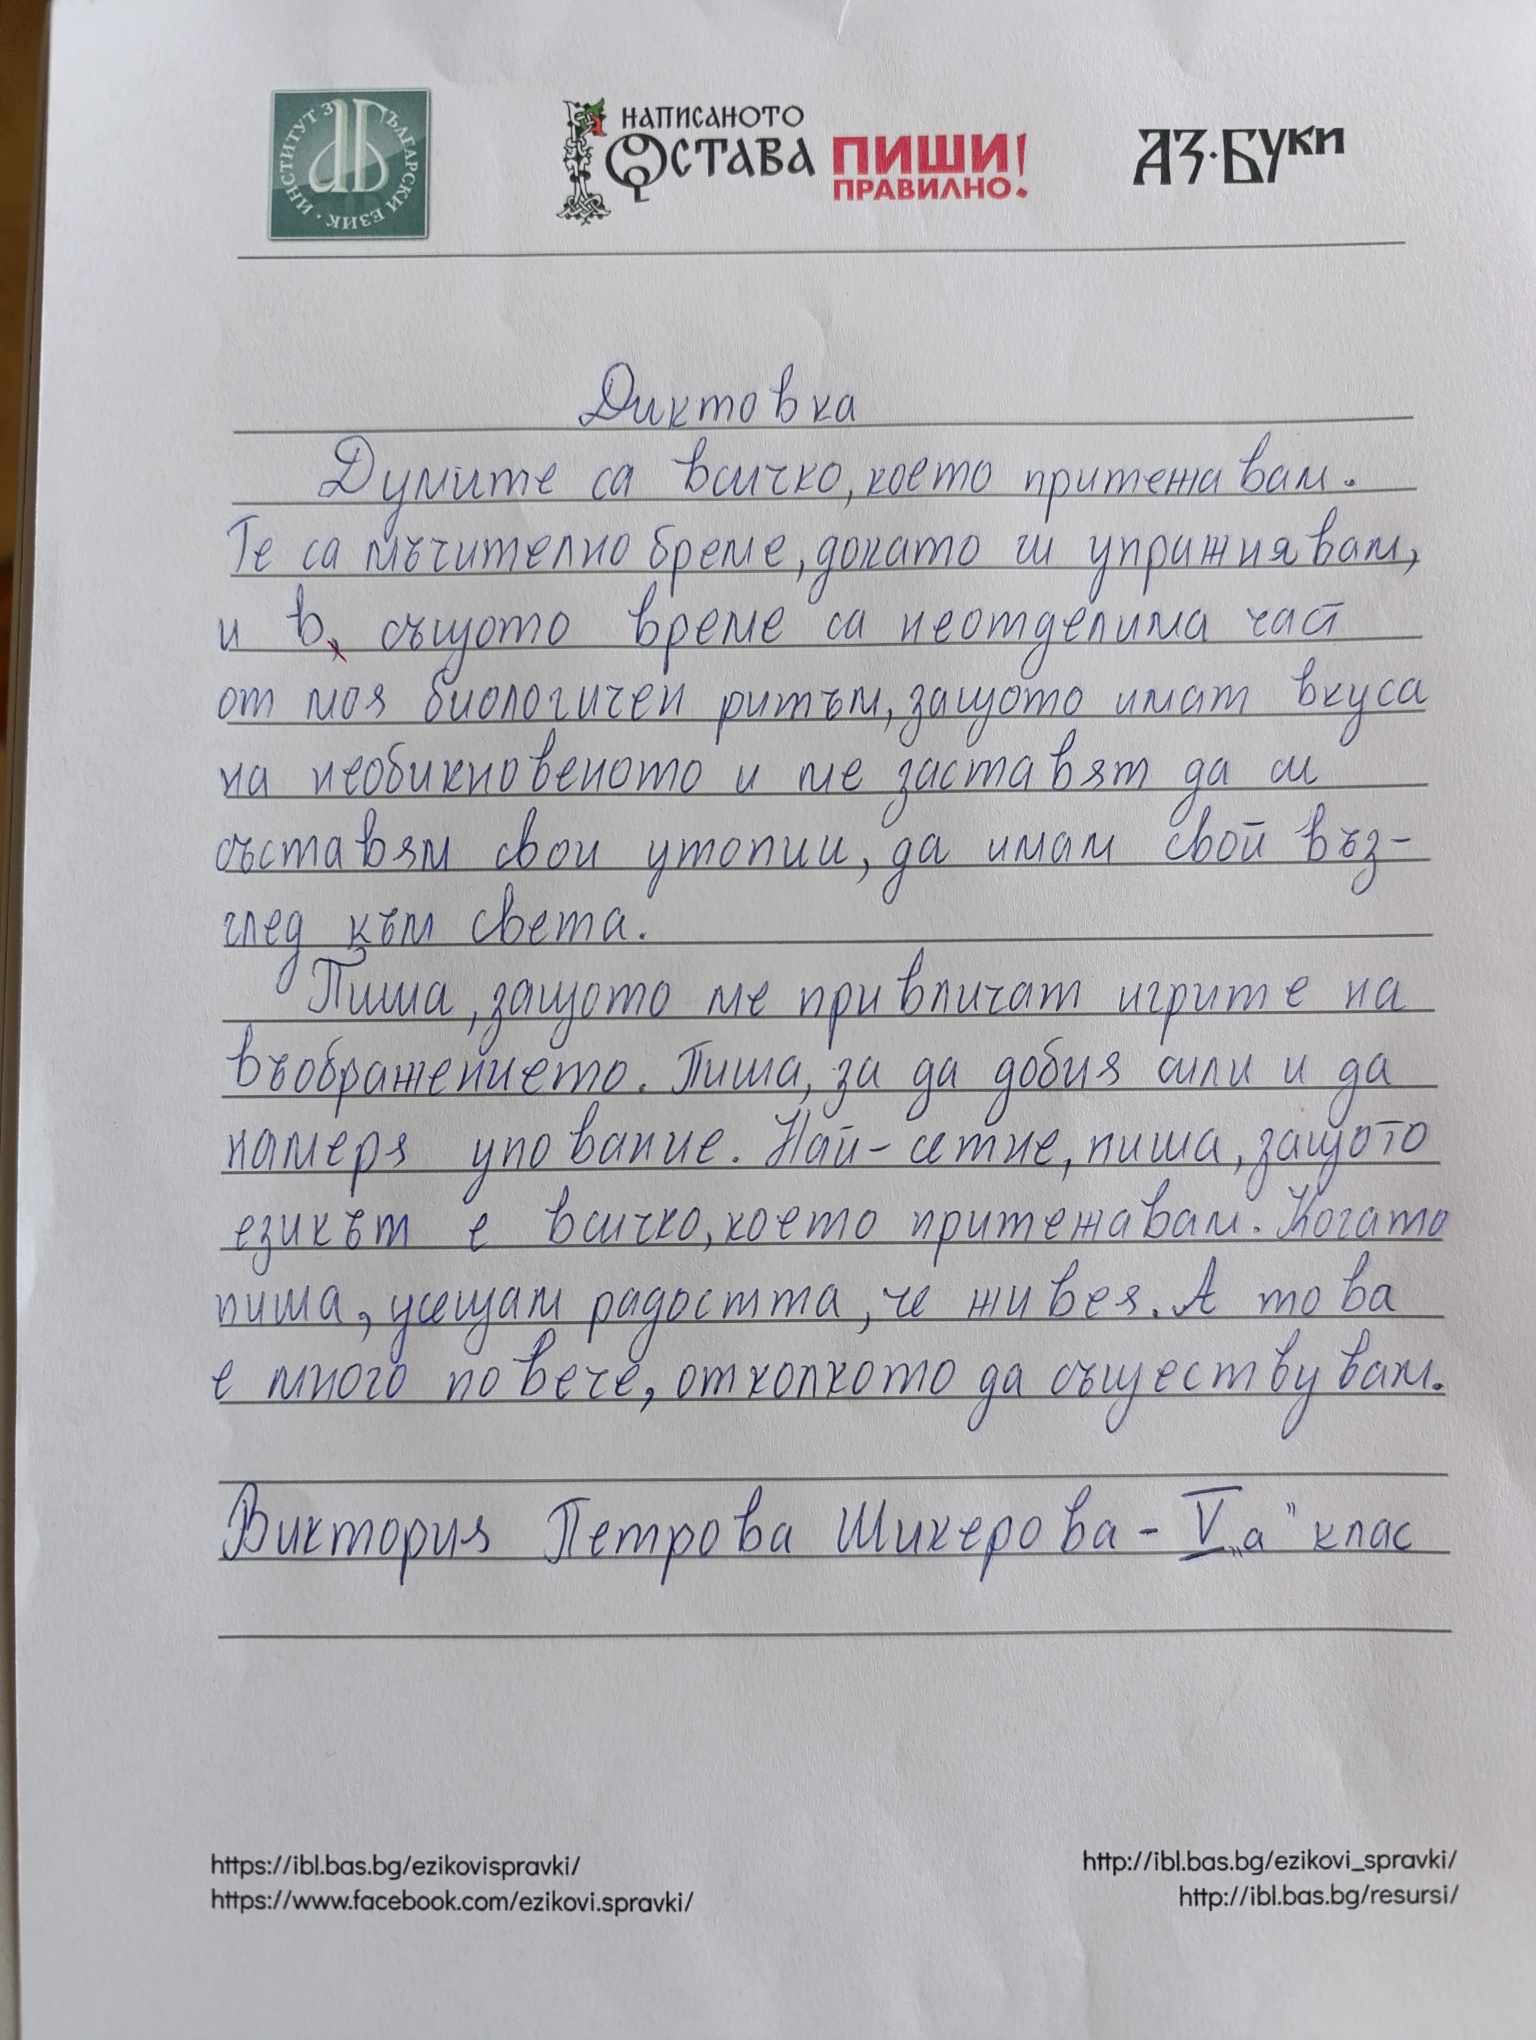 ИНСТИТУТ ЗА БЪЛГАРСКИ ЕЗИК
НАПИСАНОТО
ОСТАВА
ПИШИ
ПРАВИЛНО!
АЗ·БУКИ
Диктовка
Думите са всичко, което притежавам.
Те са мъчително бреме, докато ги упражнявам,
и в същото време са неотделима част
от моя биологичен ритъм, защото имат вкуса
на необикновеното и ме заставят да си
съставям свои утопии, да имам свой въз-
глед към света.
Пиша, защото ме привличат игрите на
въображението. Пиша, за да добия сили и да
намеря упование. Най-сетне, пиша, защото
езикът е всичко, което притежавам. Когато
пиша, усещам радостта, че живея. А това
е много повече, отколкото да съществувам.
Виктория Петрова Шикерова - V „а" клас
https://ibl.bas.bg/ezikovispravki/
http://ibl.bas.bg/ezikovi_spravki/
https://www.facebook.com/ezikovi.spravki/
http://ibl.bas.bg/resursi/